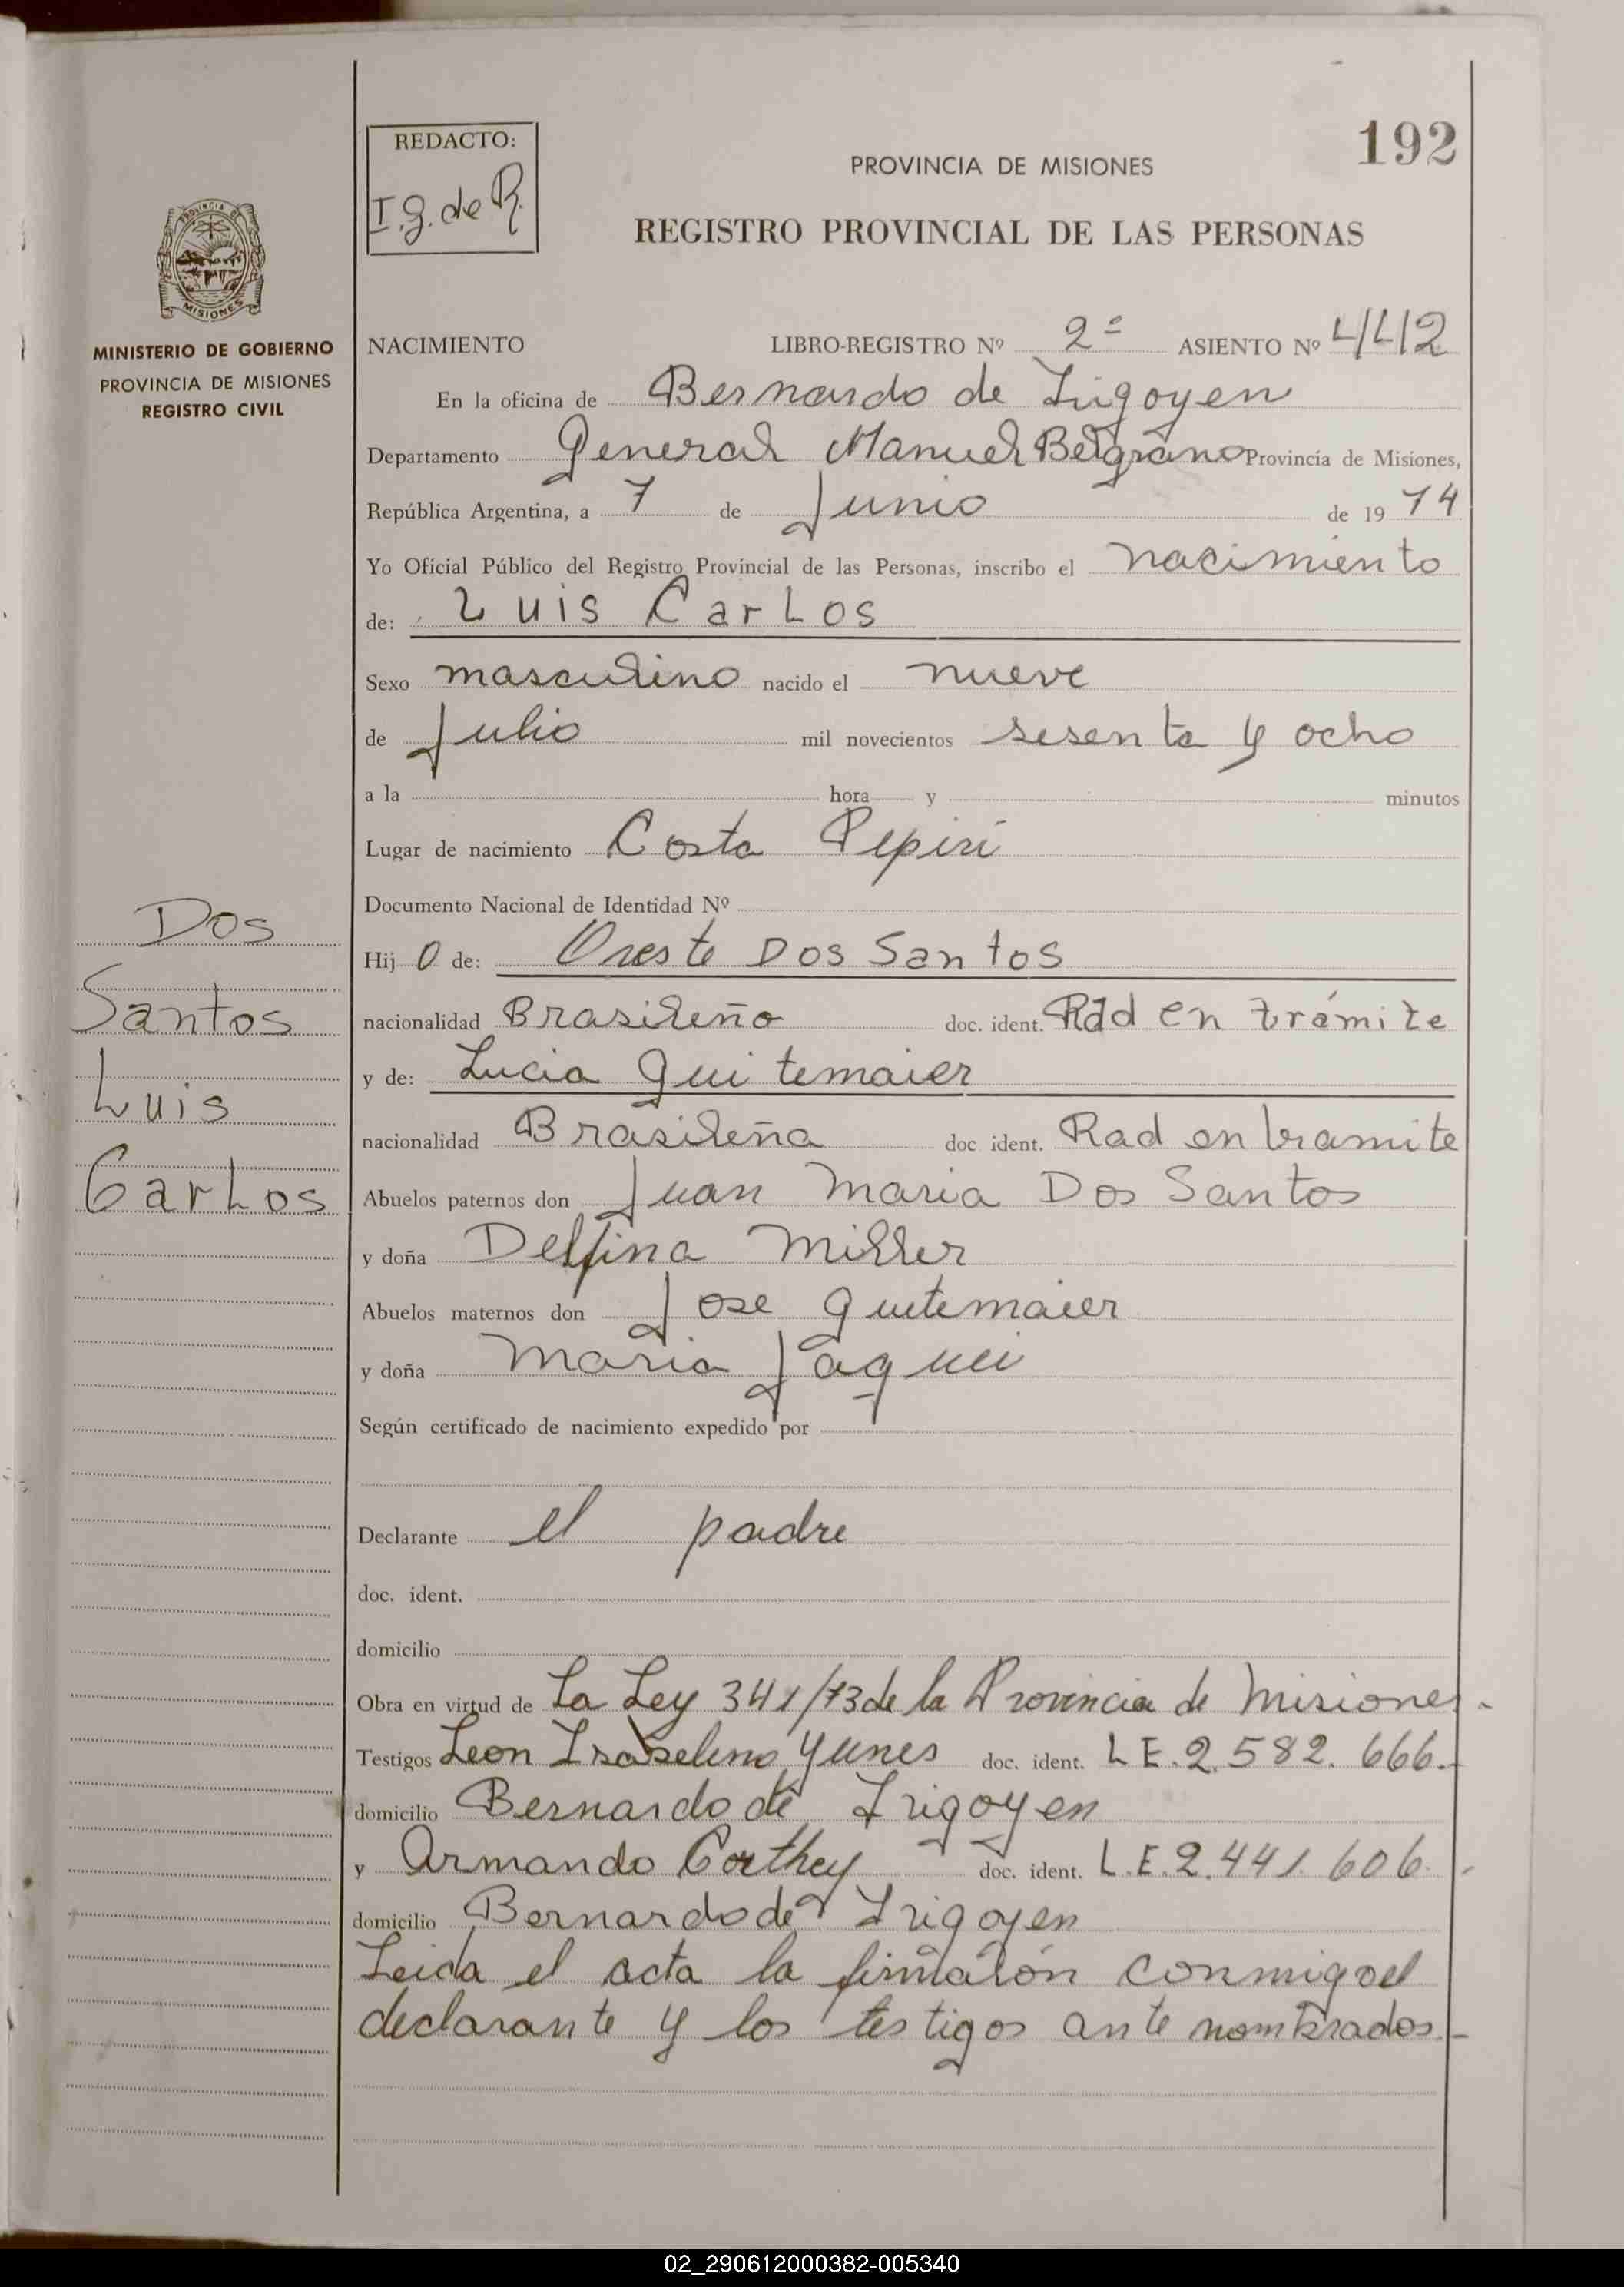 192
REDACTO:
I.G. de R.
PROVINCIA DE MISIONES
REGISTRO PROVINCIAL DE LAS PERSONAS
PROVINCIA DE
MISIONES
MINISTERIO DE GOBIERNO
PROVINCIA DE MISIONES
REGISTRO CIVIL
NACIMIENTO LIBRO-REGISTRO Nº 2º ASIENTO Nº 442
En la oficina de Bernardo de Irigoyen
Departamento General Manuel Belgrano Provincia de Misiones,
República Argentina, a 7 de Junio de 19 74
Yo Oficial Público del Registro Provincial de las Personas, inscribo el nacimiento
de: Luis Carlos
Sexo masculino nacido el nueve
de Julio mil novecientos sesenta y ocho
a la hora y minutos
Lugar de nacimiento Costa Pepirí
Documento Nacional de Identidad Nº
Dos
Santos
Luis
Carlos
Hij o de: Oreste Dos Santos
nacionalidad Brasileño doc. ident. Rad en trámite
y de: Lucia Guitemaier
nacionalidad Brasileña doc ident. Rad en tramite
Abuelos paternos don Juan Maria Dos Santos
y doña Delfina Miller
Abuelos maternos don Jose Guitemaier
y doña Maria
Según certificado de nacimiento expedido por
Declarante el padre
doc. ident.
domicilio
Obra en virtud de La Ley 341/73 de la Provincia de Misiones.
Testigos Leon Yunes doc. ident. L E. 2.582.666.-
domicilio Bernardo de Irigoyen
y Armando Corthey doc. ident. L.E. 2.441.606.-
domicilio Bernardo de Irigoyen
Leida el acta la firmarón conmigo el
declarante y los testigos ante nombrados.-
02_290612000382-005340